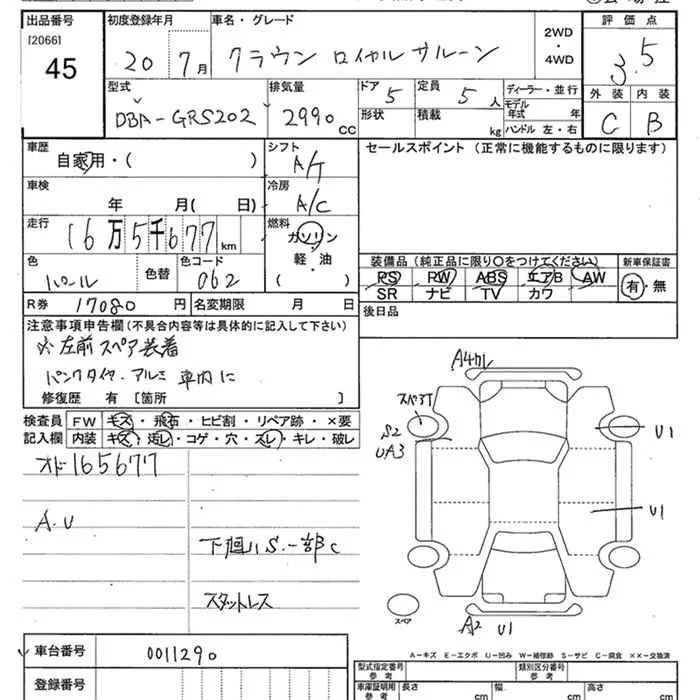 出品番号 初度登録年月 車名・グレード 評価点
[2066] 45
20 7月 クラウン ロイヤルサルーン 2WD・4WD 3.5
型式 排気量 ドア 5 定員 5人 ディーラー・並行 外装 内装
DBA-GRS202 2990cc 形状 積載 kg モデル年式 年 ハンドル 左・右 C B
車歴 シフト セールスポイント(正常に機能するものに限ります)
自家用・( ) A/T
車検 冷房
年 月( 日) A/C
走行 燃料
16万5千677km ガソリン
色 色替 色コード 軽・油 装備品(純正品に限り○をつけてください) 新車保証書
パール 062 ( ) PS PW ABS エアB AW 有・無
SR ナビ TV カワ
R券 17080円 名変期限 月 日 後日品
注意事項申告欄(不具合内容等は具体的に記入して下さい)
左前スペア装着
パンクタイヤ・アルミ 車内に
修復歴 有 [箇所 ]
検査員 FW キズ・飛石・ヒビ割・リペア跡・×要
記入欄 内装 キズ・汚レ・コゲ・穴・スレ・キレ・破レ
オド165677
A.U
下廻りS.一部C
スタットレス
A4カレ
スペアT
S2
UA3
U1
U1
スペア
A2 U1
A-キズ E-エクボ U-凹み W-補修跡 S-サビ C-腐食 ××-交換済
車台番号 0011290
登録番号
型式指定番号 参考 類別区分番号 参考
車庫証明用 参考 長さ cm 幅 cm 高さ cm